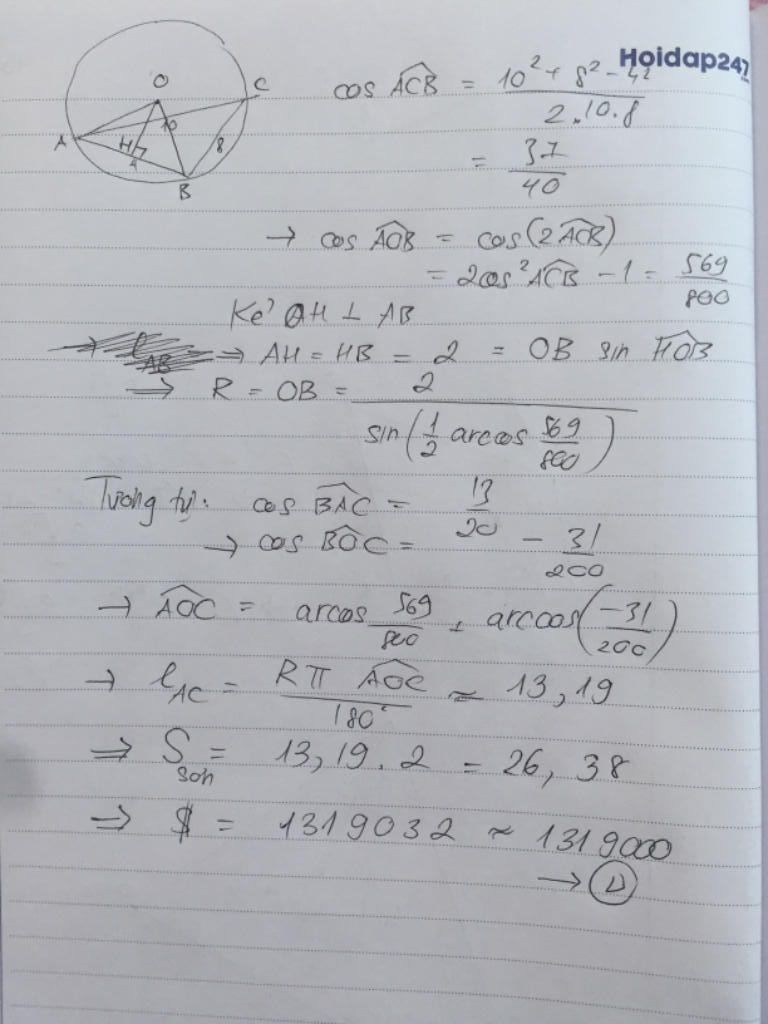 Hoidap247
O
C
A
H
10
8
4
B
cos ACB = 10² + 8² - 4² / 2.10.8
= 37/40
→ cos AOB = cos(2ACB)
= 2cos² ACB - 1 = 569/800
Kẻ OH ⊥ AB
→ AH = HB = 2 = OB sin HOB
→ R = OB = 2 / sin(1/2 arcos 569/800)
Tương tự: cos BAC = 13/20
→ cos BOC = -31/200
→ AOC = arcos 569/800 + arccos(-31/200)
→ l_AC = Rπ AOC / 180° ≈ 13,19
⇒ S sơn = 13,19 . 2 = 26,38
⇒ $ = 1319032 ≈ 1319000
→ D